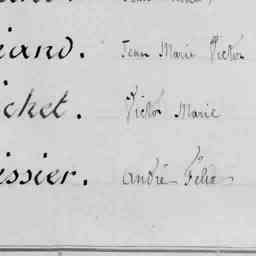 iand. Jean Marie Victor
ichet. Victor Marie
issier. André Félix